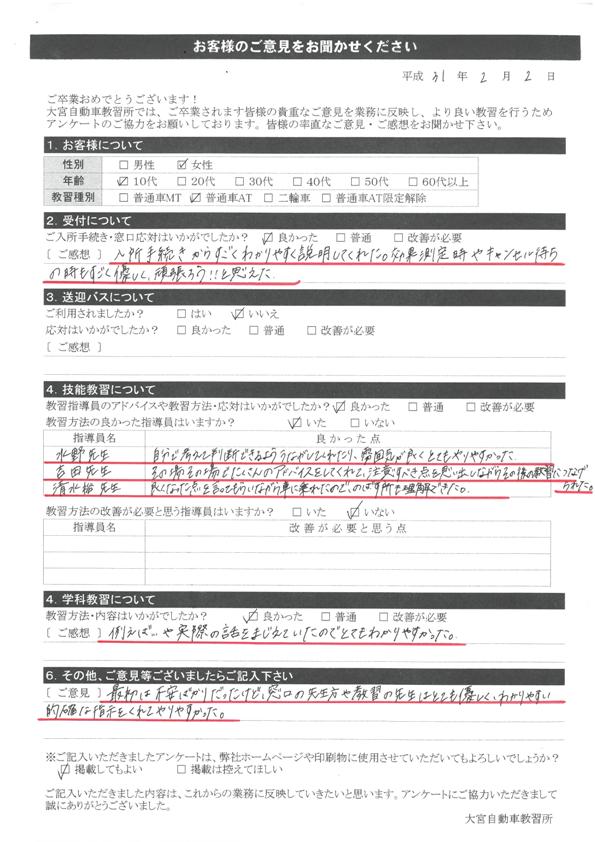 お客様のご意見をお聞かせください
平成 31 年 2 月 2 日
ご卒業おめでとうございます！
大宮自動車教習所では、ご卒業されます皆様の貴重なご意見を業務に反映し、より良い教習を行うため
アンケートのご協力をお願いしております。皆様の率直なご意見・ご感想をお聞かせ下さい。
1. お客様について
性別 □ 男性 ☑ 女性
年齢 ☑ 10代 □ 20代 □ 30代 □ 40代 □ 50代 □ 60代以上
教習種別 □ 普通車MT ☑ 普通車AT □ 二輪車 □ 普通車AT限定解除
2. 受付について
ご入所手続き・窓口応対はいかがでしたか？ ☑ 良かった □ 普通 □ 改善が必要
[ ご感想 ] 入所手続きからすごくわかりやすく説明してくれた。効果測定時やキャンセル待ち
の時もすごく優しく、頑張ろう!!と思えた。
3. 送迎バスについて
ご利用されましたか？ □ はい ☑ いいえ
応対はいかがでしたか？ □ 良かった □ 普通 □ 改善が必要
[ ご感想 ]
4. 技能教習について
教習指導員のアドバイスや教習方法・応対はいかがでしたか？ ☑ 良かった □ 普通 □ 改善が必要
教習方法の良かった指導員はいますか？ ☑ いた □ いない
指導員名 良かった点
水野先生 自分で考えて判断できるよううながしてくれたり、雰囲気が良くとてもやりやすかった。
吉田先生 その場その場でたくさんのアドバイスをしてくれて、注意すべき点を思い出しながらその後の教習につなげ
られた。
清水 先生 良くなった点を言ってもらいながら車に乗れたので、のばす所も理解できた。
教習方法の改善が必要と思う指導員はいますか？ □ いた ☑ いない
指導員名 改善が必要と思う点
4. 学科教習について
教習方法・内容はいかがでしたか？ ☑ 良かった □ 普通 □ 改善が必要
[ ご感想 ] 例えば…や実際の話をまじえていたのでとてもわかりやすかった。
6. その他、ご意見等ございましたらご記入下さい
[ ご意見 ] 最初は不安ばかりだったけど、窓口の先生方や教習の先生はとても優しく、わかりやすい
的確な指示をくれてやりやすかった。
※ご記入いただきましたアンケートは、弊社ホームページや印刷物に使用させていただいてもよろしいでしょうか？
☑ 掲載してもよい □ 掲載は控えてほしい
ご記入いただきました内容は、これからの業務に反映していきたいと思います。アンケートにご協力いただきまして
誠にありがとうございました。
大宮自動車教習所